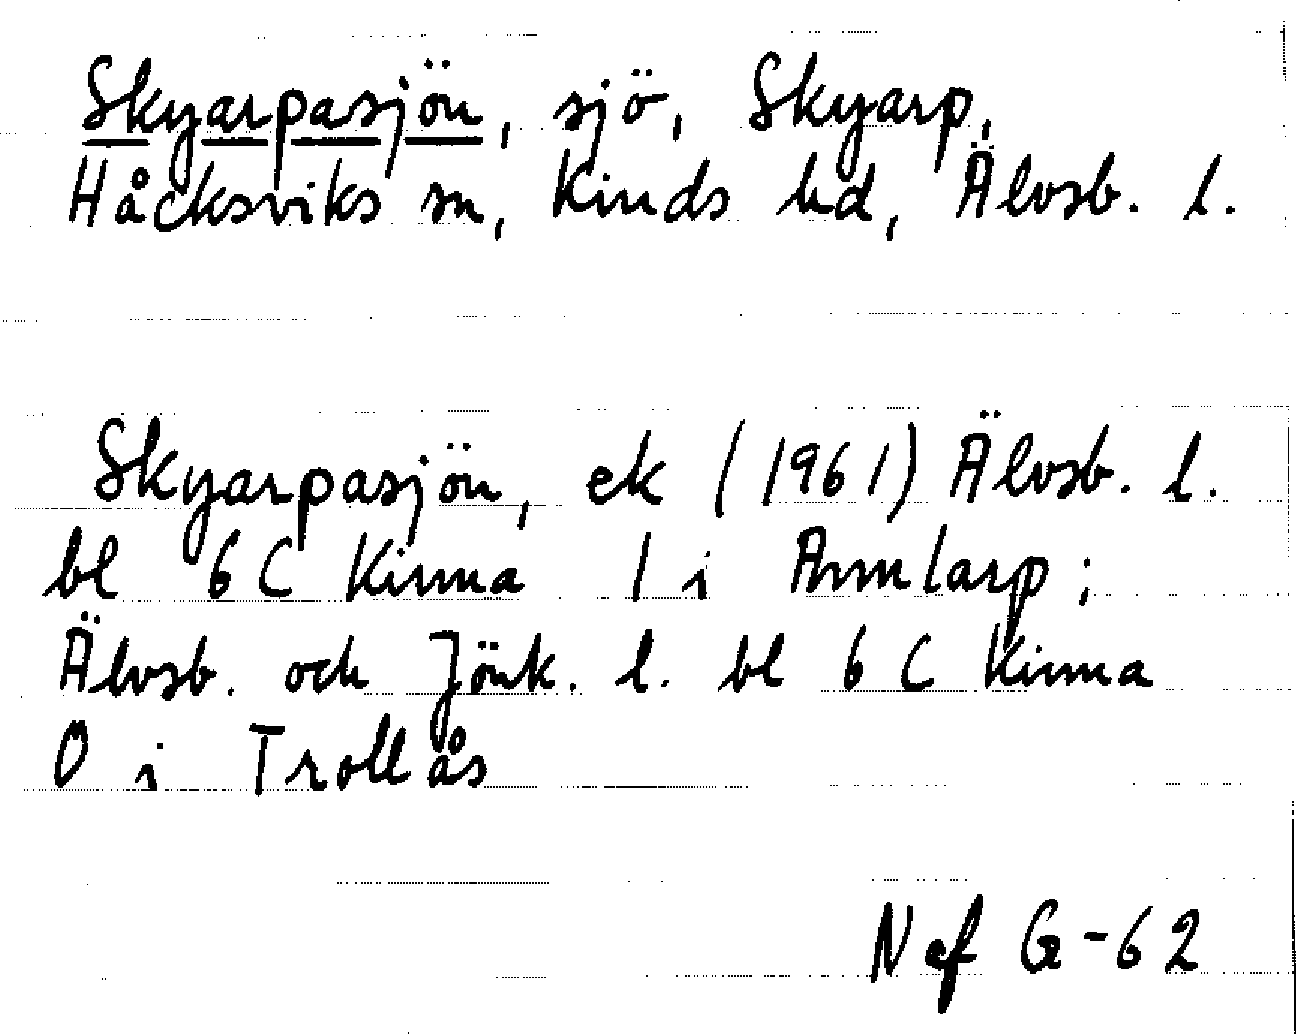 Skyarpasjön, sjö, Skyarp,
Håcksviks sn, Kinds hd, Älvsb. l.
Skyarpasjön, ek (1961) Älvsb. l.
bl 6 C Kinna 1 i Annlarp;
Älvsb. och Jönk. l. bl 6 C Kinna
0 i Trollås
Nef G-62